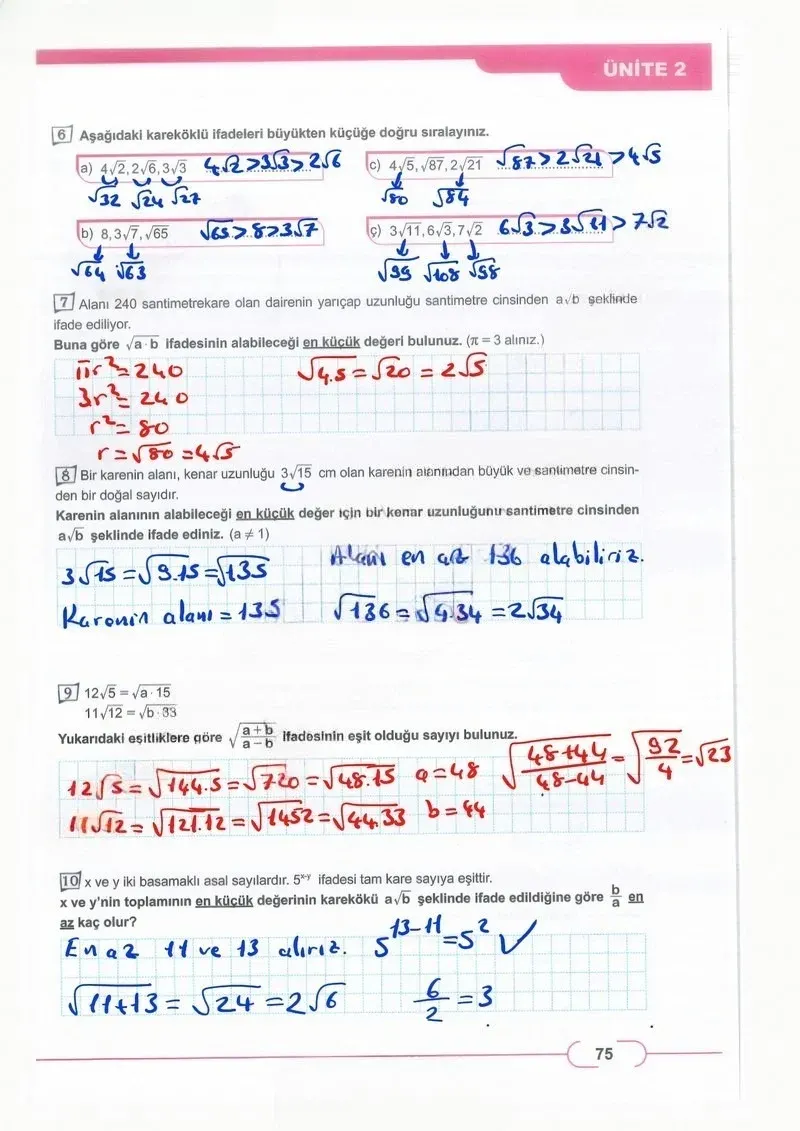 ÜNİTE 2
6 Aşağıdaki kareköklü ifadeleri büyükten küçüğe doğru sıralayınız.
a) 4√2, 2√6, 3√3 4√2 > 3√3 > 2√6
√32 √24 √27
c) 4√5, √87, 2√21 √87 > 2√21 > 4√5
√80 √84
b) 8, 3√7, √65 √65 > 8 > 3√7
√64 √63
ç) 3√11, 6√3, 7√2 6√3 > 3√11 > 7√2
√99 √108 √98
7 Alanı 240 santimetrekare olan dairenin yarıçap uzunluğu santimetre cinsinden a√b şeklinde
ifade ediliyor.
Buna göre √a·b ifadesinin alabileceği en küçük değeri bulunuz. (π = 3 alınız.)
πr² = 240 √4.5 = √20 = 2√5
3r² = 240
r² = 80
r = √80 = 4√5
8 Bir karenin alanı, kenar uzunluğu 3√15 cm olan karenin alanından büyük ve santimetre cinsin-
den bir doğal sayıdır.
Karenin alanının alabileceği en küçük değer için bir kenar uzunluğunu santimetre cinsinden
a√b şeklinde ifade ediniz. (a ≠ 1)
3√15 = √9.15 = √135 Alanı en az 136 alabiliriz.
Karenin alanı = 135 √136 = √4.34 = 2√34
9 12√5 = √a·15
11√12 = √b·33
Yukarıdaki eşitliklere göre √(a+b)/(a−b) ifadesinin eşit olduğu sayıyı bulunuz.
12√5 = √144.5 = √720 = √48.15 a = 48 √(48+44)/(48−44) = √92/4 = √23
11√12 = √121.12 = √1452 = √44.33 b = 44
10 x ve y iki basamaklı asal sayılardır. 5ˣ⁻ʸ ifadesi tam kare sayıya eşittir.
x ve y'nin toplamının en küçük değerinin karekökü a√b şeklinde ifade edildiğine göre b/a en
az kaç olur?
En az 11 ve 13 alırız. 5¹³⁻¹¹ = 5² ✓
√11+13 = √24 = 2√6 6/2 = 3
75